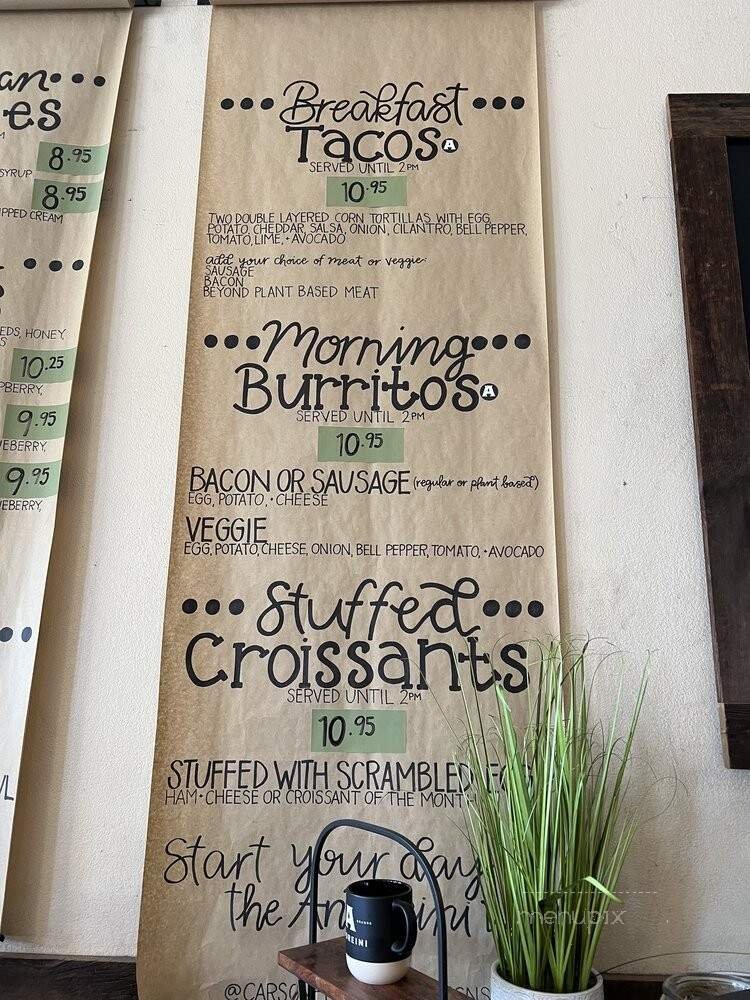 8.95
SYRUP
8.95
IPPED CREAM
EDS, HONEY,
10.25
PBERRY,
9.95
EBERRY,
9.95
EBERRY,
Breakfast
Tacos A
SERVED UNTIL 2PM
10.95
TWO DOUBLE LAYERED CORN TORTILLAS WITH EGG,
POTATO, CHEDDAR, SALSA, ONION, CILANTRO, BELL PEPPER,
TOMATO, LIME, + AVOCADO
add your choice of meat or veggie:
SAUSAGE
BACON
BEYOND PLANT BASED MEAT
Morning
Burritos A
SERVED UNTIL 2PM
10.95
BACON OR SAUSAGE (regular or plant based)
EGG, POTATO, + CHEESE
VEGGIE
EGG, POTATO, CHEESE, ONION, BELL PEPPER, TOMATO, + AVOCADO
Stuffed
Croissants
SERVED UNTIL 2PM
10.95
STUFFED WITH SCRAMBLED EGG
HAM + CHEESE OR CROISSANT OF THE MONTH
Start your day
the An
A
REINI
@CARS
menupix